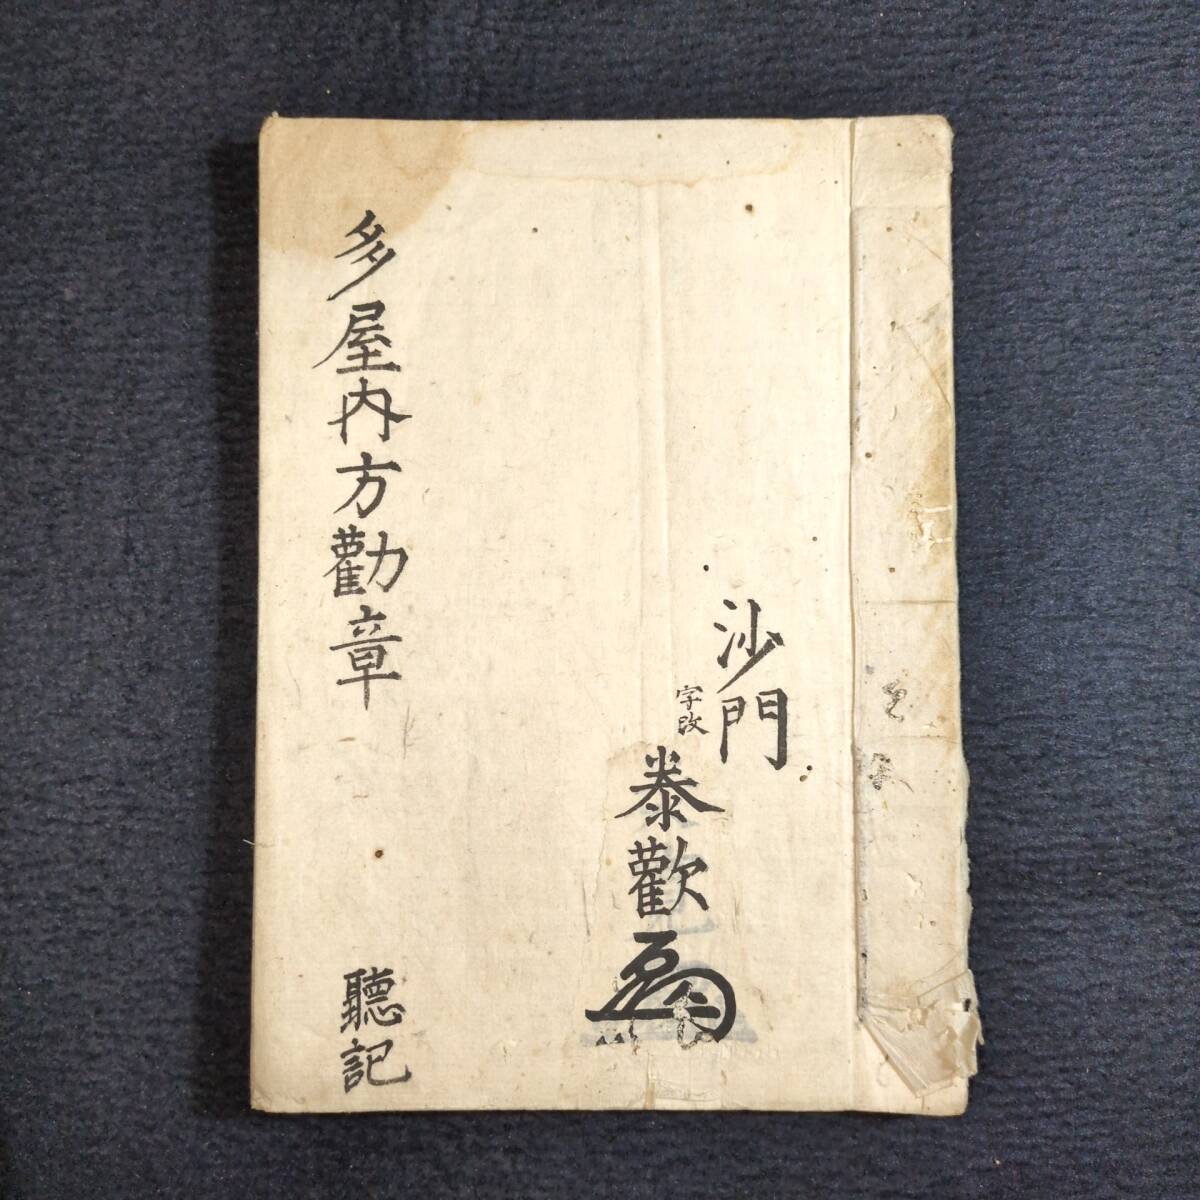 沙門
字改
泰歡
多屋内方勸章
聽記